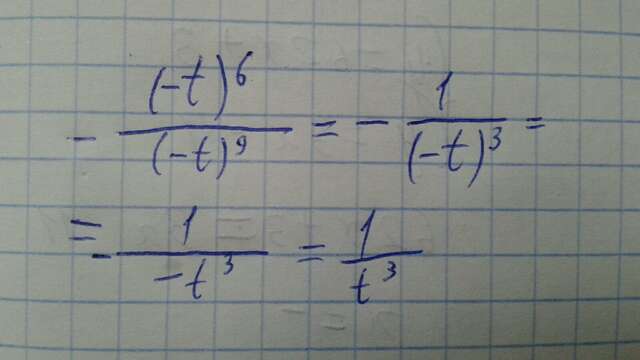 - (-t)^6 / (-t)^9 = - 1 / (-t)^3 =
= - 1 / -t^3 = 1 / t^3